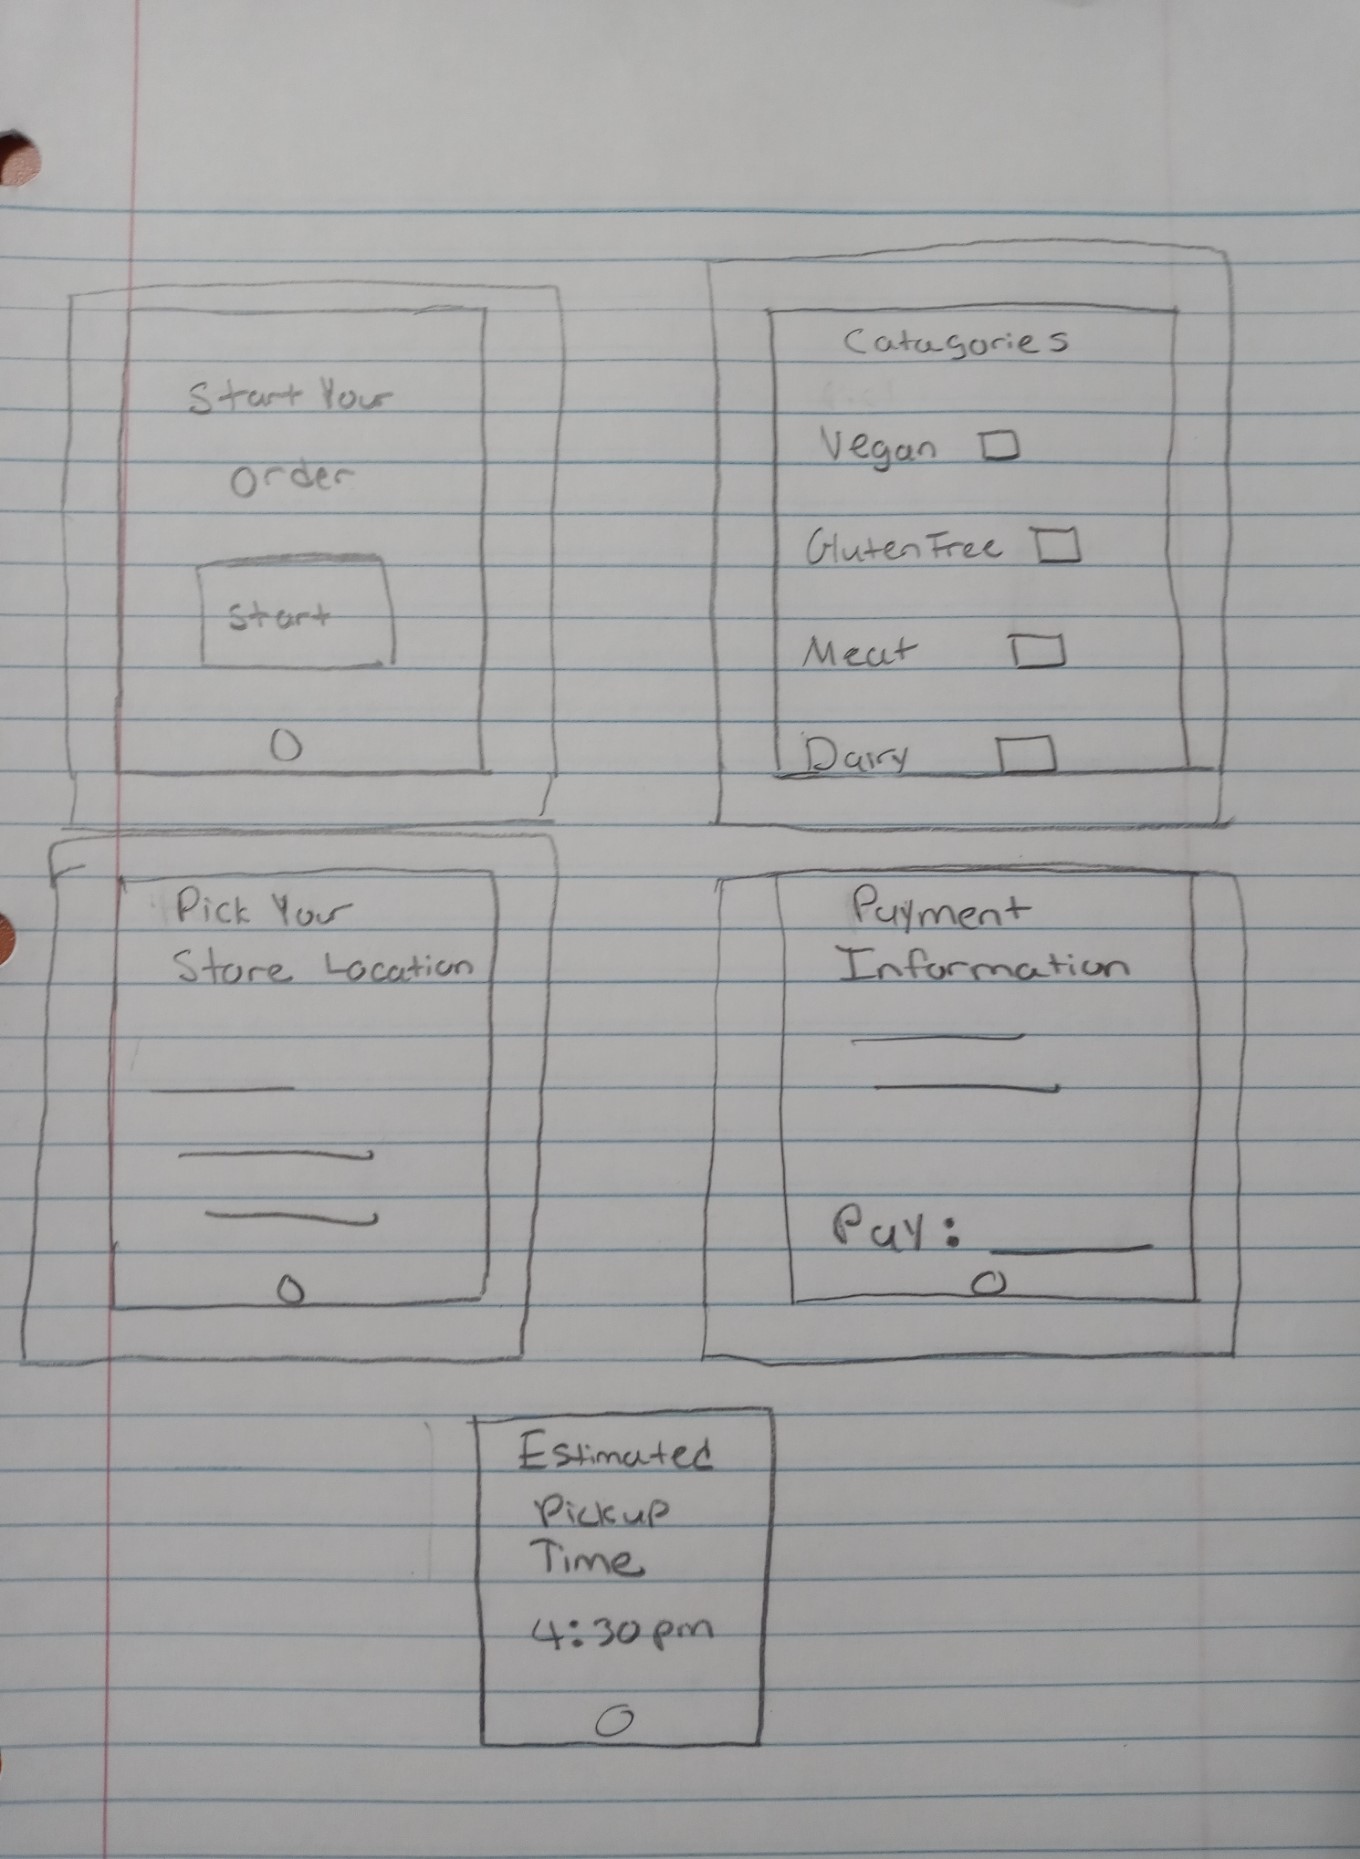 Start Your
order
Start
Catagories
Vegan
Gluten Free
Meat
Dairy
Pick Your
Store Location
Payment
Information
Pay:
Estimated
Pickup
Time
4:30pm